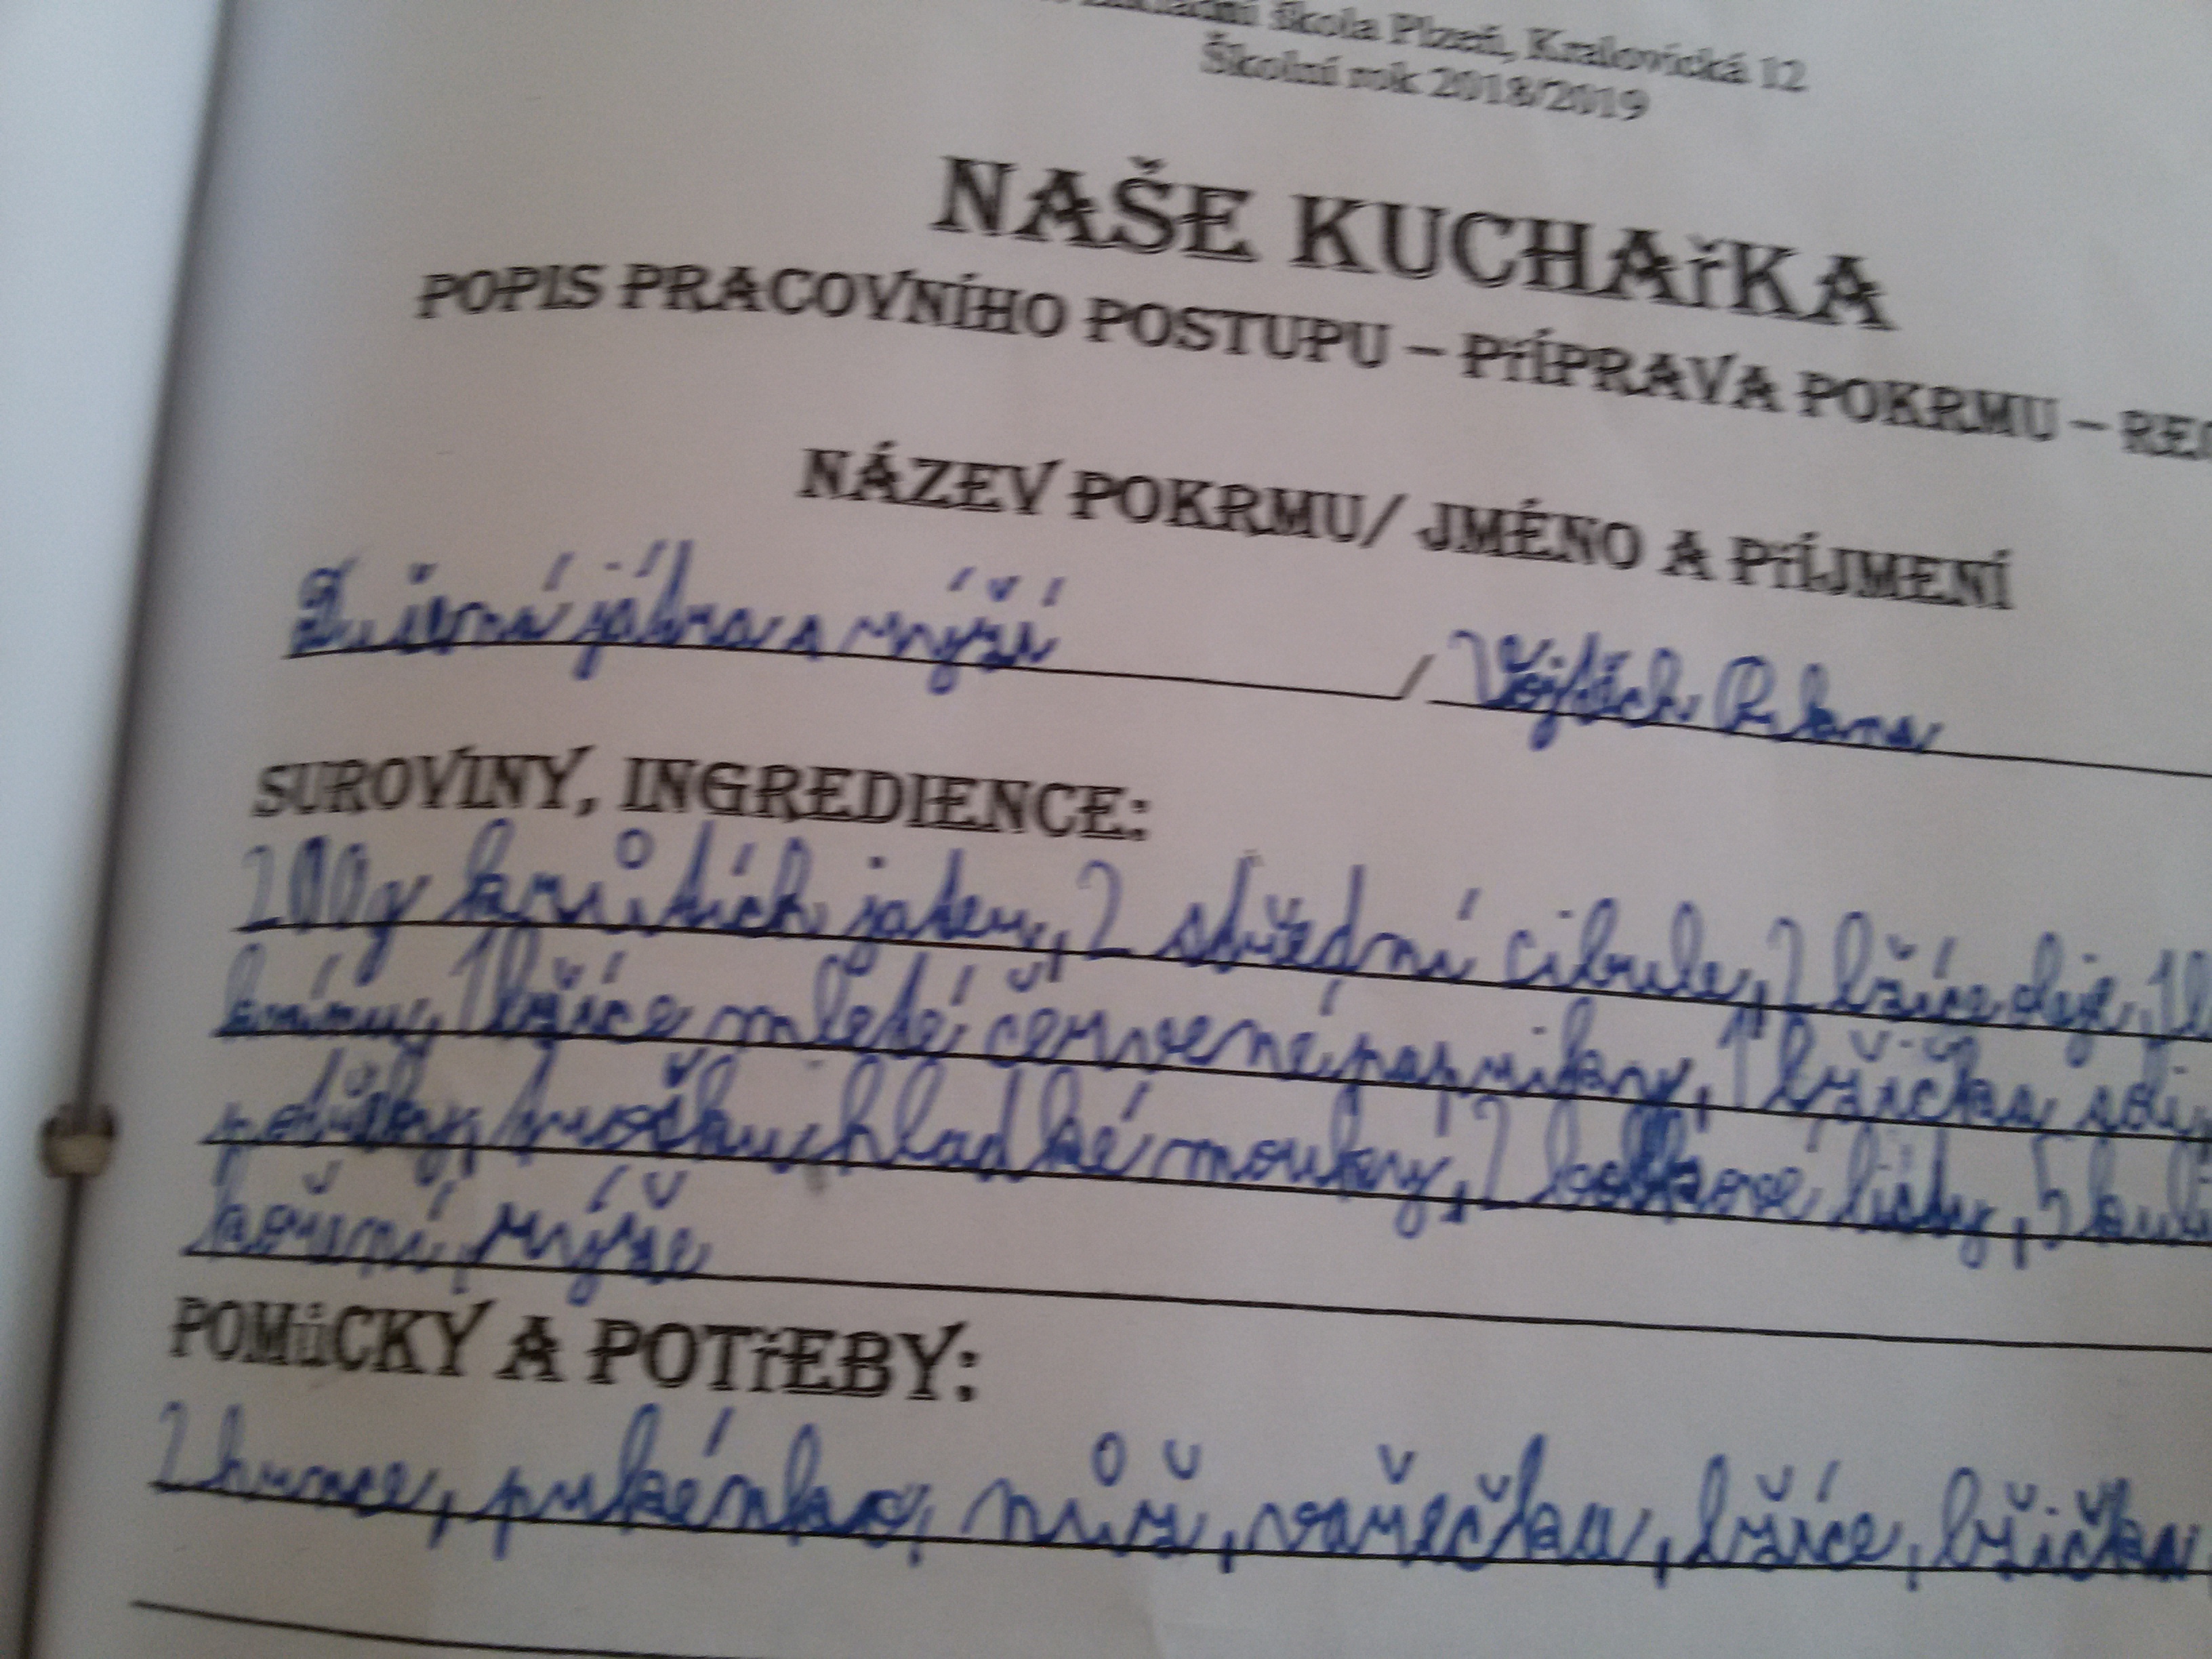 základní škola Plzeň, Kralovická 12
Školní rok 2018/2019
NAŠE KUCHAřKA
POPIS PRACOVNÍHO POSTUPU – PřÍPRAVA POKRMU –
NÁZEV POKRMU/ JMÉNO A PřÍJMENÍ
Dušená játra s rýží / Vojtěch
SUROVINY, INGREDIENCE:
200g krůtích jater, 2 střední cibule, 2 lžíce oleje,
kmínu, 1 lžíce mleté červené papriky, 1 lžička
hladké mouky, 2 bobkové listy, 5
koření, rýže
POMůCKY A POTřEBY:
2 hrnce, prkénko, nůž, vařečka, lžíce, lžička